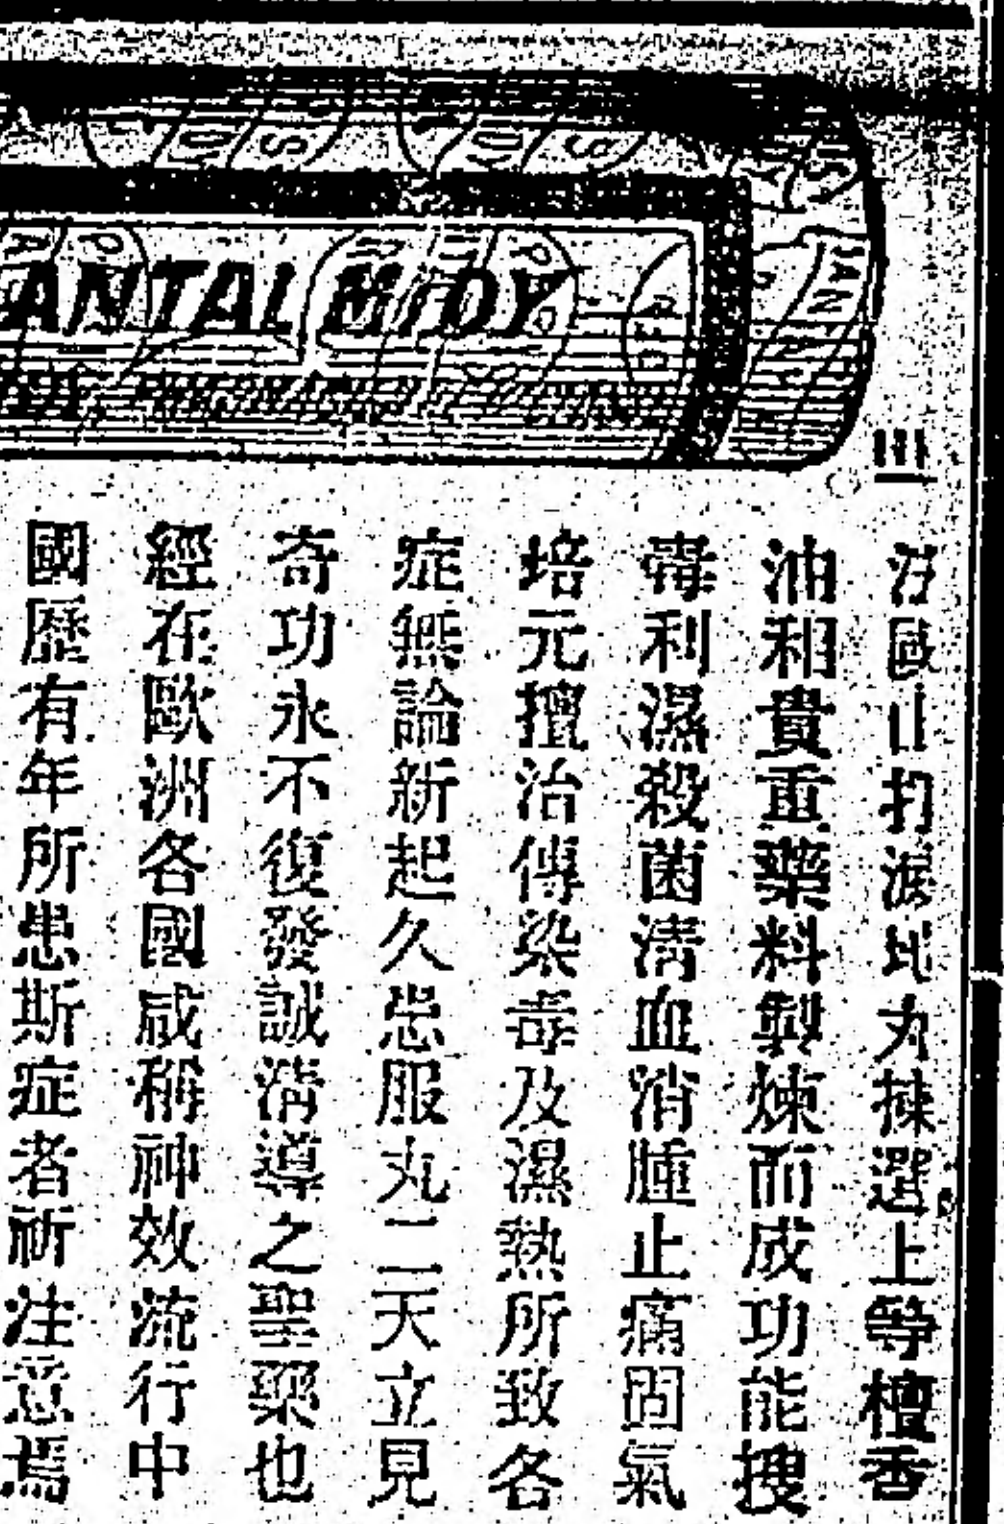 ANTAL MIDY
山打 丸揀選上等檀香
油和貴重藥料製煉而成功能搜
毒利濕殺菌清血消腫止痛固氣
培元擅治傳染毒及濕熱所致各
症無論新起久患服丸二天立見
奇功永不復發誠淸導之聖藥也
經在歐洲各國咸稱神效流行中
國歷有年所患斯症者祈注意焉